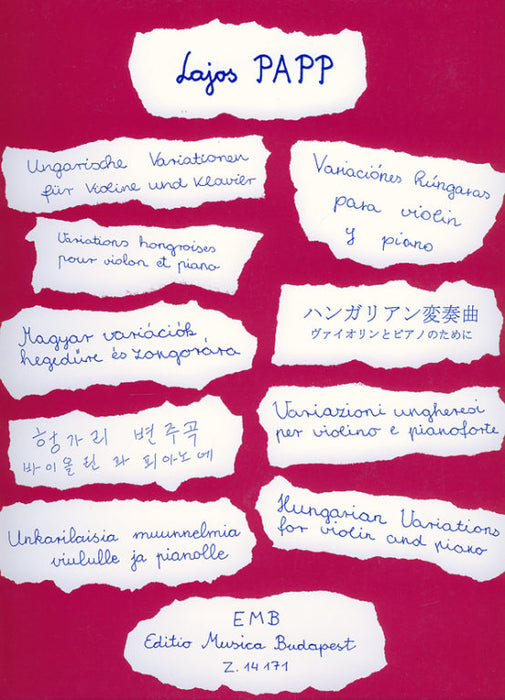 Lajos PAPP
Ungarische Variationen
für Violine und Klavier
Variaciónes húngaras
para violin
y piano
Variations hongroises
pour violon et piano
ハンガリアン変奏曲
ヴァイオリンとピアノのために
Magyar variációk
hegedűre és zongorára
Variazioni ungheresi
per violino e pianoforte
헝가리 변주곡
바이올린 라 피아노에
Unkarilaisia muunnelmia
viululle ja pianolle
Hungarian Variations
for violin and piano
EMB
Editio Musica Budapest
Z. 14 171